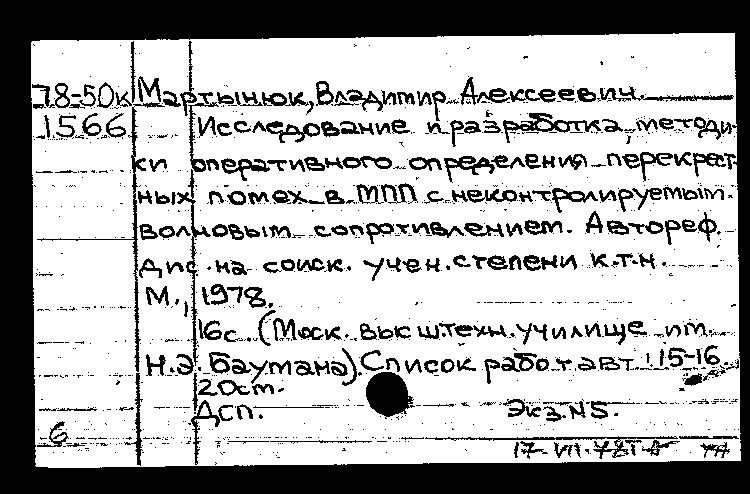 78-50к Мартынюк, Владимир Алексеевич.
1566 Исследование и разработка методи-
ки оперативного определения перекрест-
ных помех в МПП с неконтролируемым
волновым сопротивлением. Автореф.
дис. на соиск. учен. степени к.т.н.
М., 1978.
16с (Моск. высш.техн.училище им.
Н.Э. Баумана). Список работ авт.: 15-16
20см.
ДСП. Экз.N5.
6
17-VII-78г.